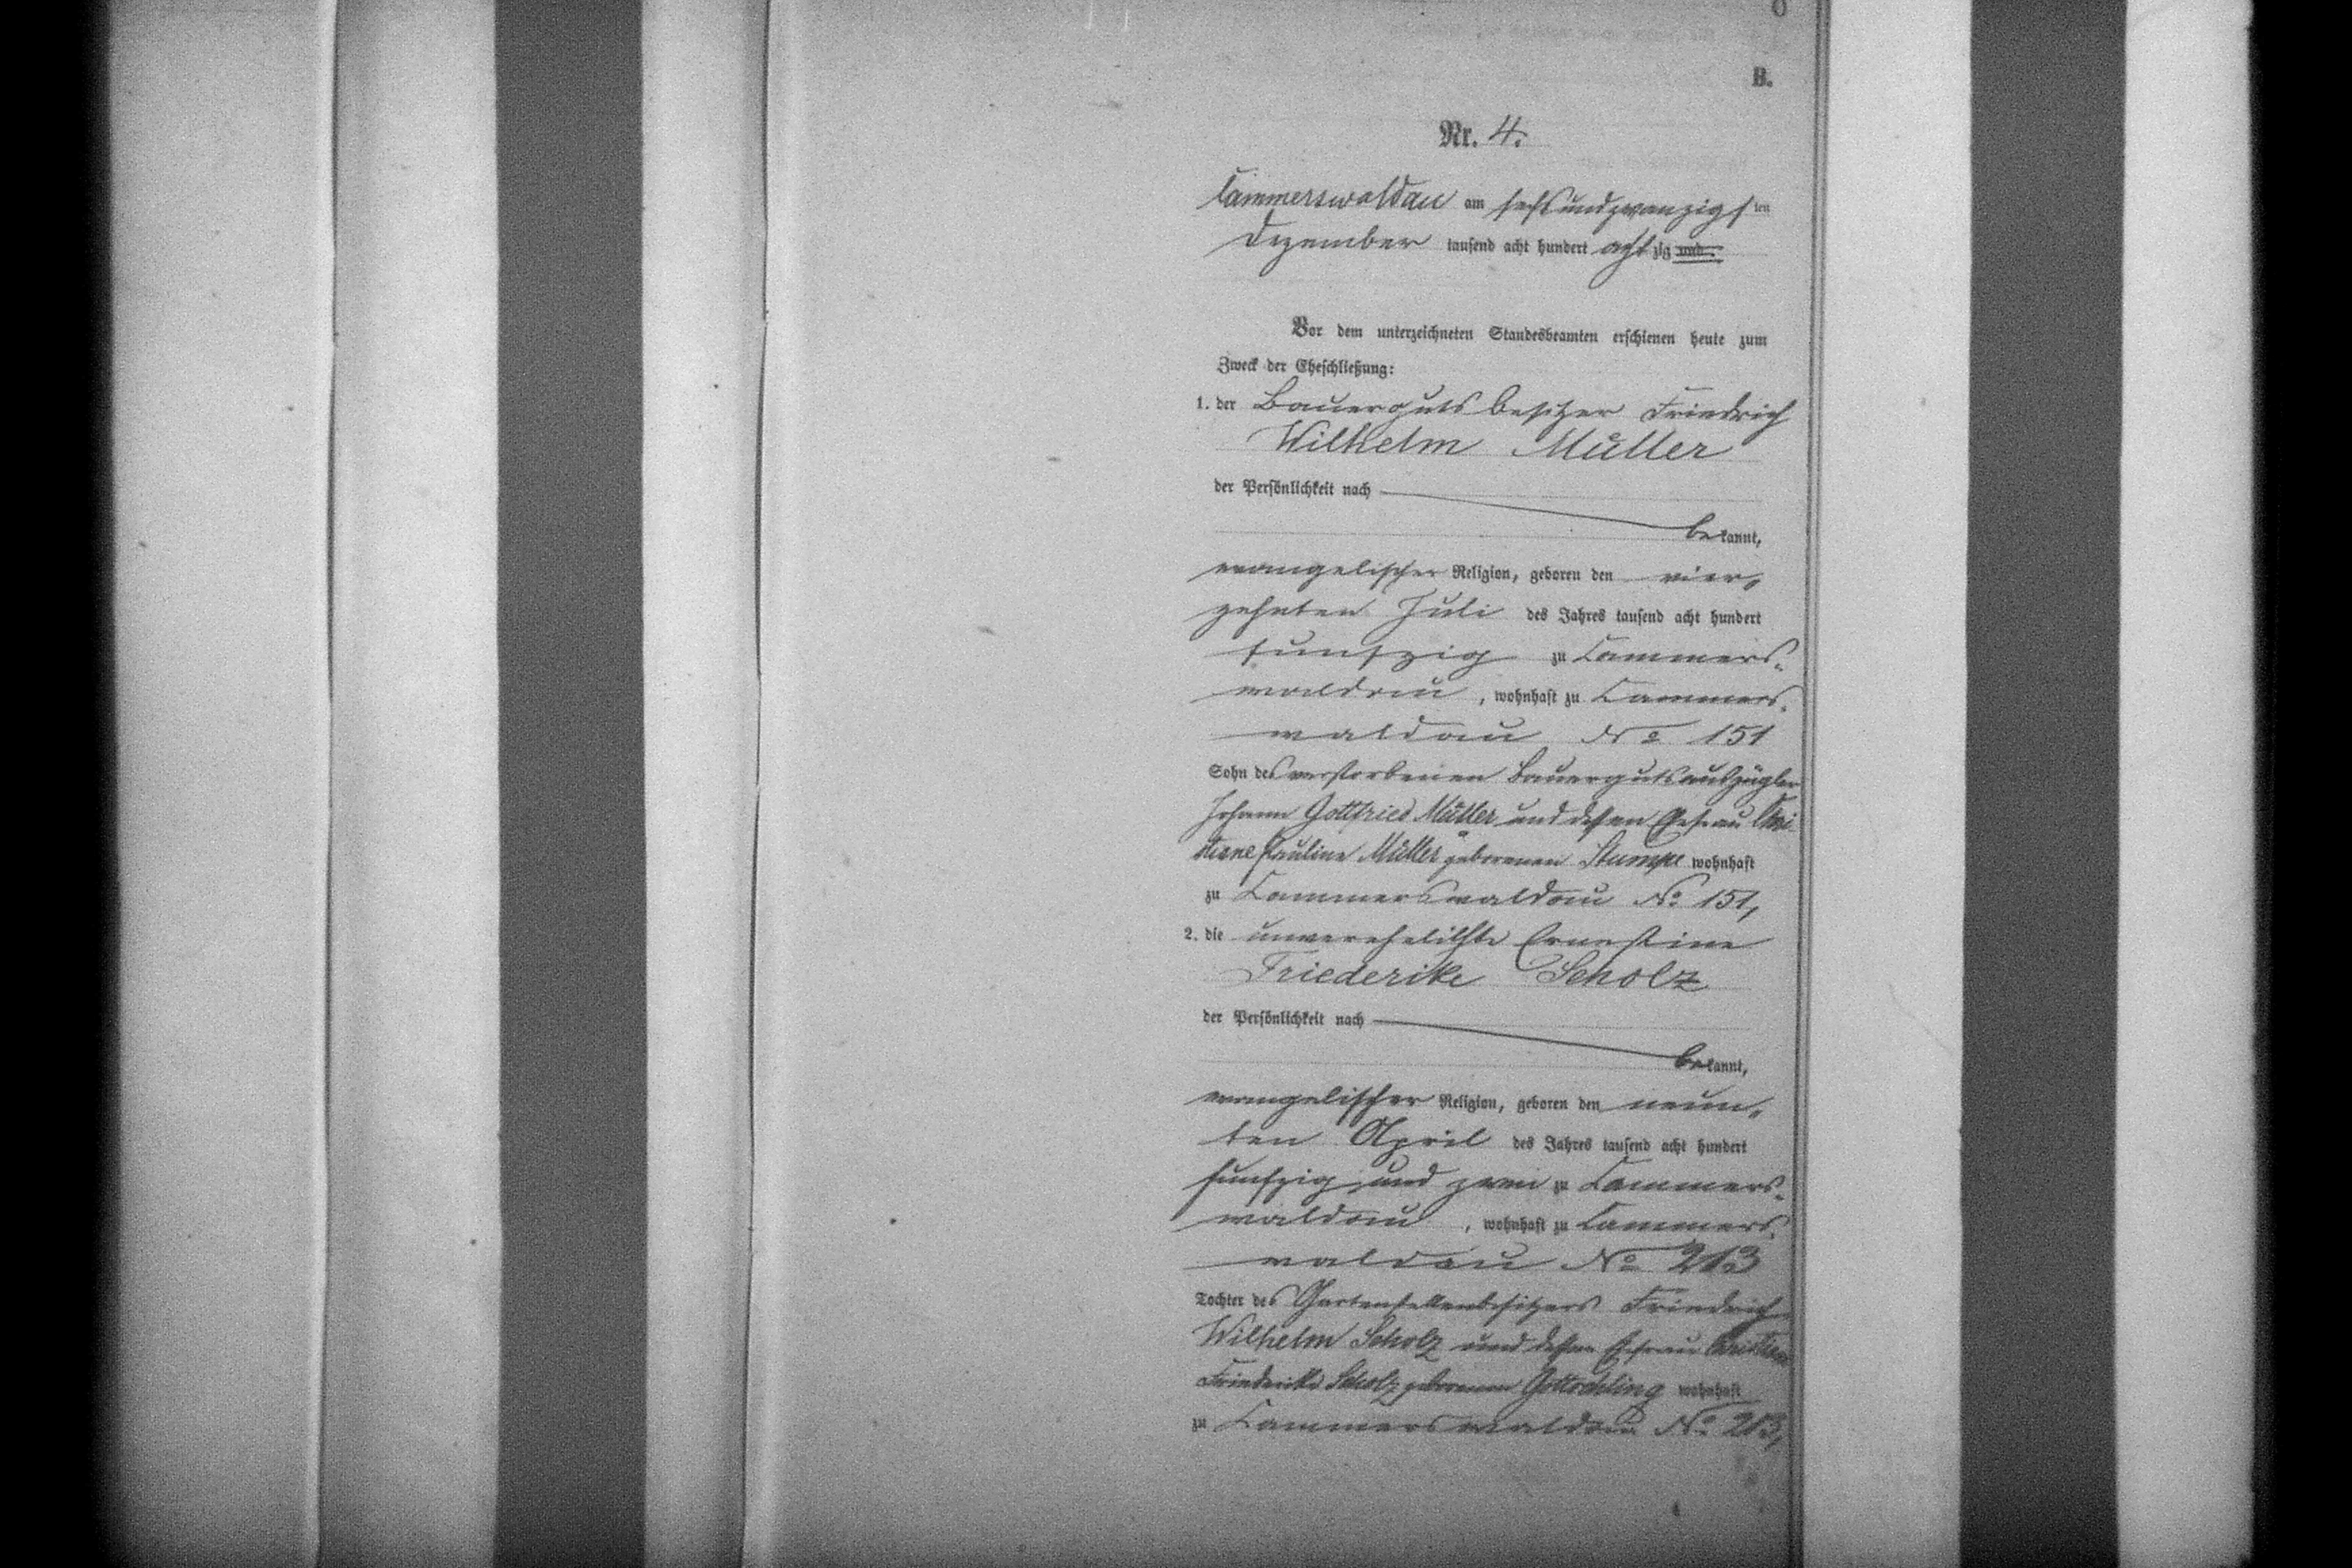 B.
Nr. 4.
Cammerswaldau am sechsundzwanzigsten
Dezember tausend acht hundert achtzig und
Vor dem unterzeichneten Standesbeamten erschienen heute zum
Zweck der Eheschließung:
1. der Bauergutsbesitzer Friedrich
Wilhelm Müller
der Persönlichkeit nach
bekannt,
evangelischer Religion, geboren den vier-
zehnten Juli des Jahres tausend acht hundert
funfzig zu Cammers-
waldau, wohnhaft zu Cammers-
waldau No 151
Sohn des verstorbenen Bauergutsauszügler
Johann Gottfried Müller und dessen Ehefrau Chri-
stiane Pauline Müller geborenen Stumpe wohnhaft
zu Cammerswaldau No 151,
2. die unverehelichte Ernestine
Friederike Scholz
der Persönlichkeit nach
bekannt,
evangelischer Religion, geboren den neun-
ten April des Jahres tausend acht hundert
funfzig und zwei zu Cammers-
waldau, wohnhaft zu Cammers-
waldau No 213
Tochter des Gartenstellenbesitzers Friedrich
Wilhelm Scholz und dessen Ehefrau Christiane
Friederike Scholz geborenen wohnhaft
zu Cammerswaldau No 213,